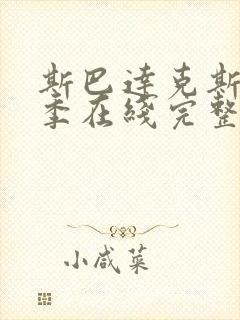 斯巴达克斯
季在线完整
小咸菜